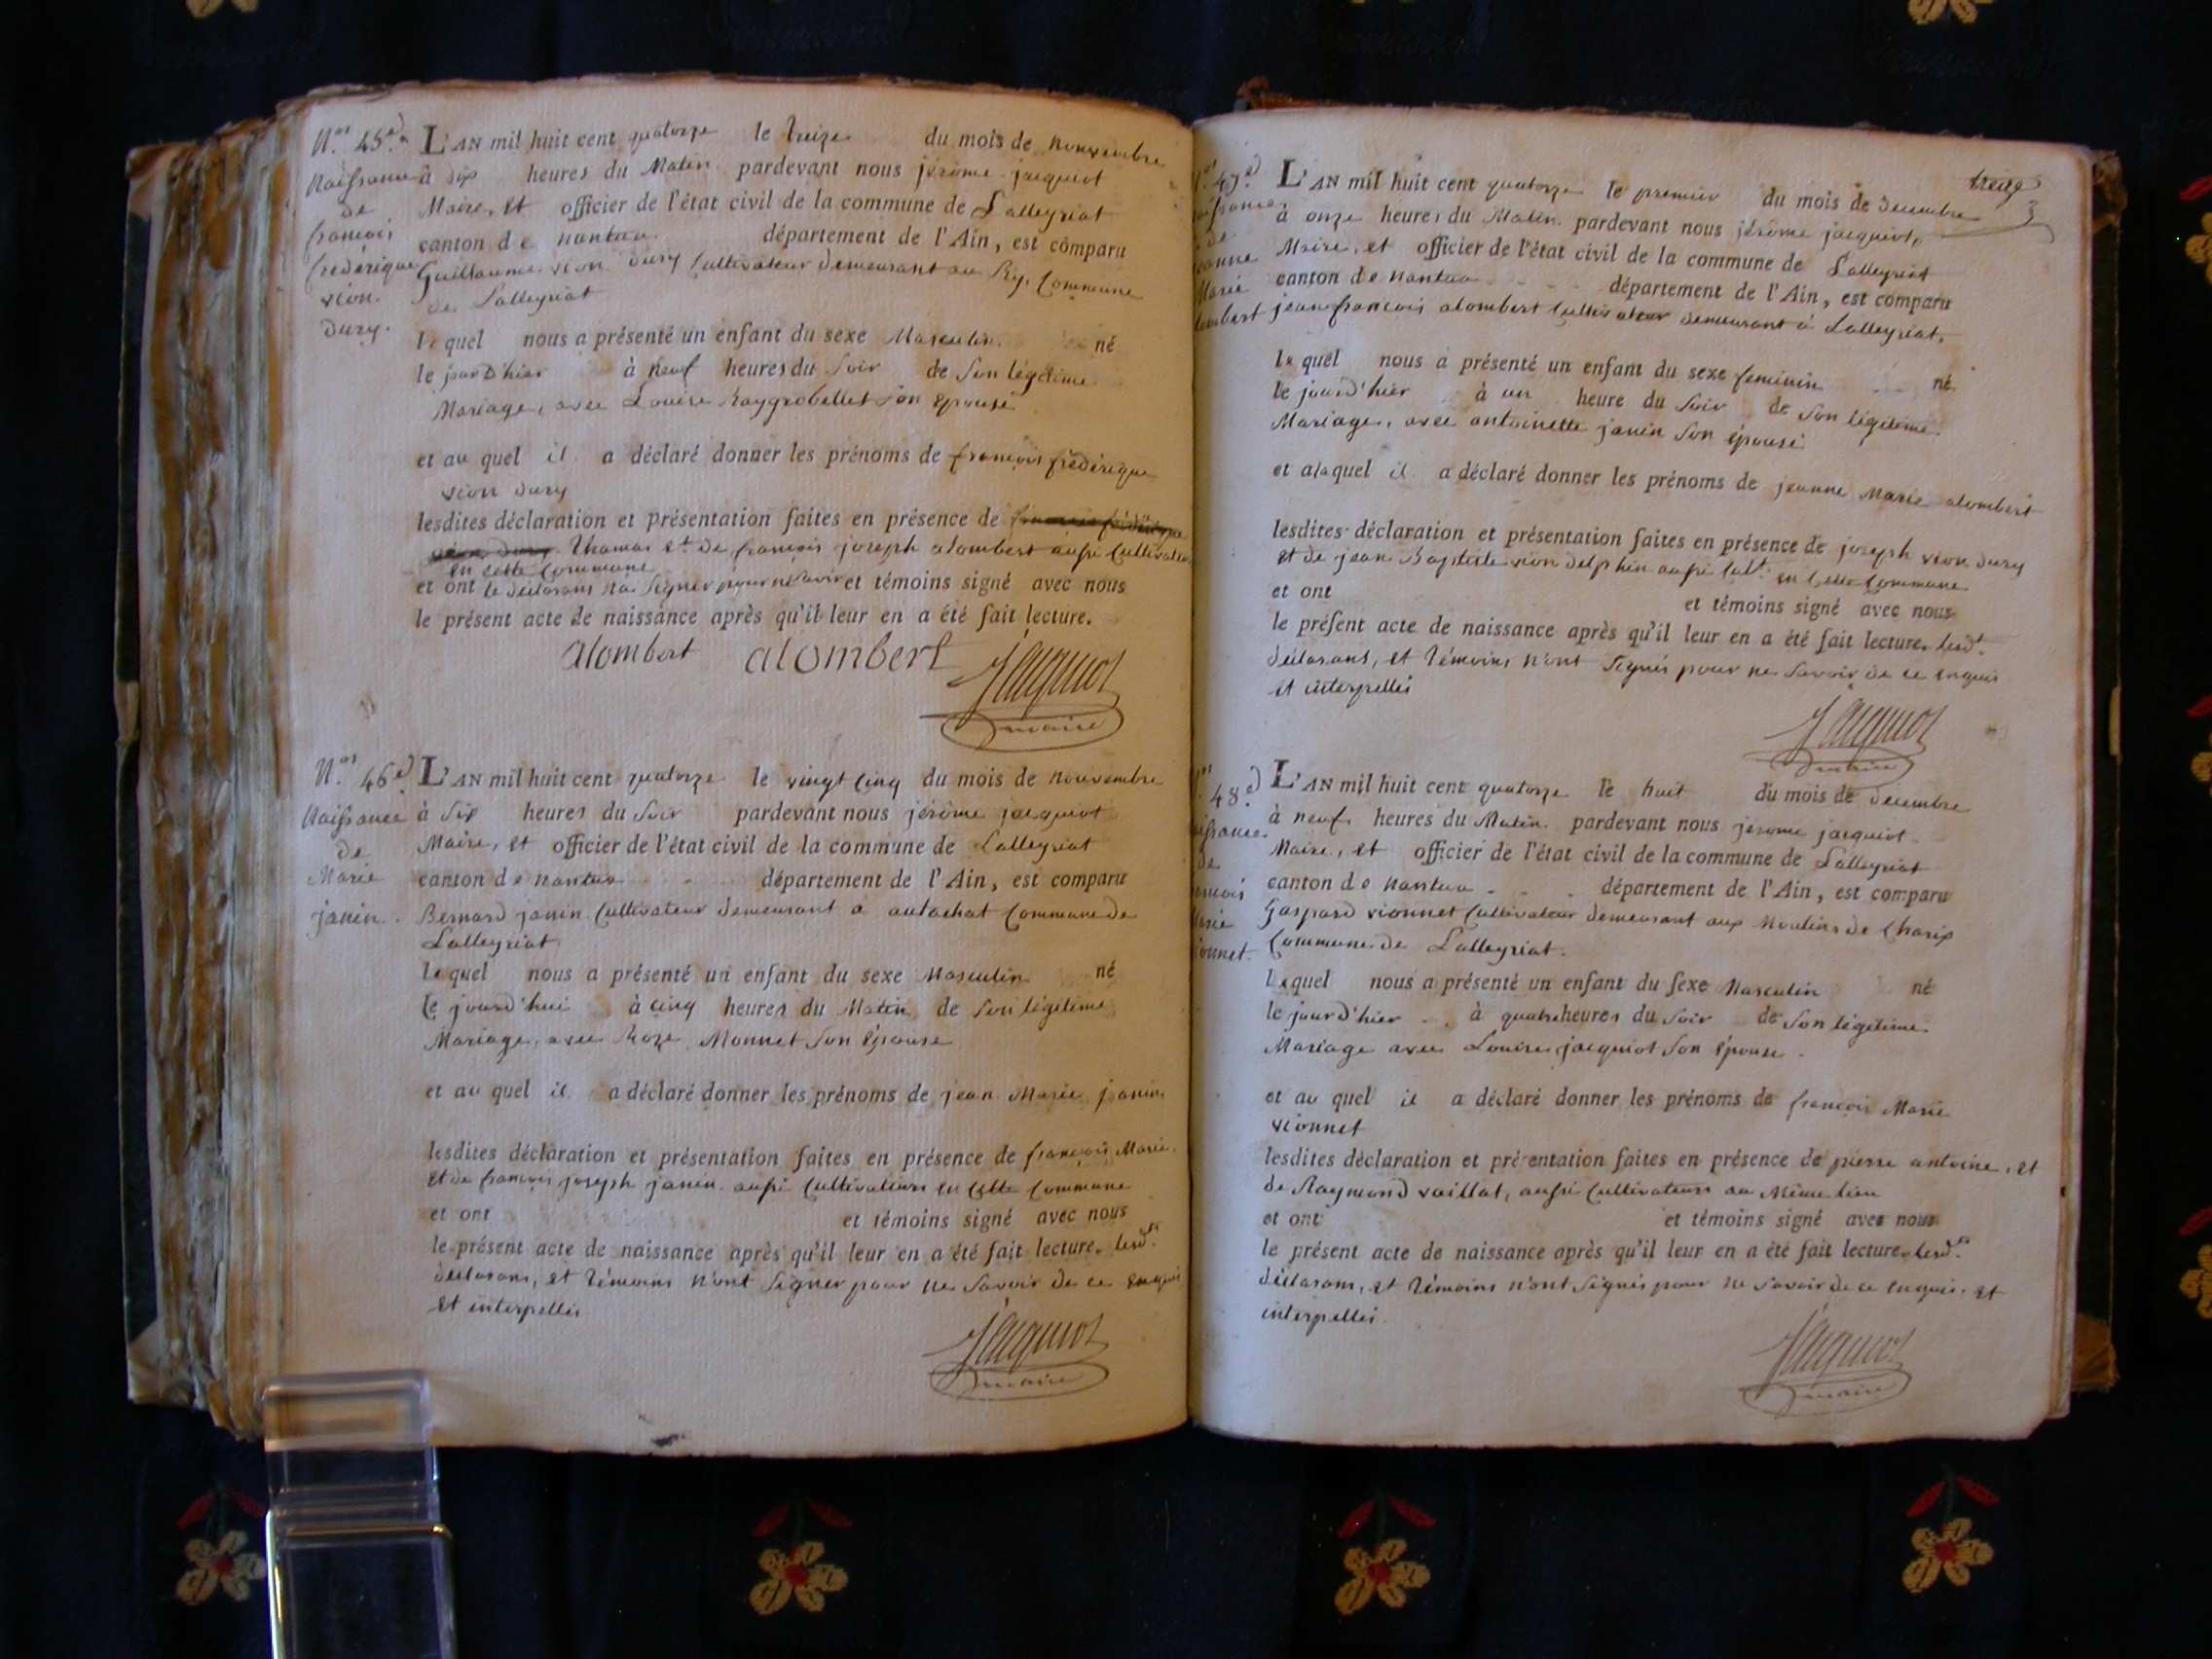 N.os 45.e
Naissance
de
françois
frederique
vion.
Dury.
L'AN mil huit cent quatorze le treize du mois de nouvembre
à dix heures du Matin pardevant nous jérôme jacquiot
Maire, et officier de l'état civil de la commune de Lalleyriat
canton de nantua département de l'Ain, est comparu
Guillaume vion Dury Cultivateur Demeurant au Commune
de Lalleyriat
lequel nous a présenté un enfant du sexe Masculin né
le jour D'hier à neuf heures du Soir de Son légitime
Mariage, avec Louise Raygrobellet Son épouse
et au quel il a déclaré donner les prénoms de françois frédérique
vion Dury
lesdites déclaration et présentation faites en présence de
Thomas et de françois joseph alombert aussi Cultivateurs
en cette Commune
et ont le déclarant na Signer pour ne Savoir et témoins signé avec nous
le présent acte de naissance après qu'il leur en a été fait lecture.
alombert alombert Jacquiot
maire
N.os 46.e
Naissance
de
Marie
janin.
L'AN mil huit cent quatorze le vingt Cinq du mois de nouvembre
à Six heures du Soir pardevant nous jérôme jacquiot
Maire, et officier de l'état civil de la commune de Lalleyriat
canton de nantua département de l'Ain, est comparu
Bernard janin Cultivateur Demeurant à autachat Commune de
Lalleyriat
lequel nous a présenté un enfant du sexe Masculin né
le jourd'hui à Cinq heures du Matin de Son légitime
Mariage, avec Roze Monnet Son épouse
et au quel il a déclaré donner les prénoms de jean Marie janin
lesdites déclaration et présentation faites en présence de françois Marie
et de françois joseph janin aussi Cultivateurs en Cette Commune
et ont et témoins signé avec nous
le présent acte de naissance après qu'il leur en a été fait lecture. lesd.ts
déclarans, et témoins n'ont Signer pour ne Savoir de ce enquis
et interpellés
Jacquiot
maire
treize
47.e
de
Marie
L'AN mil huit cent quatorze le premier du mois de Decembre
à onze heures du Matin pardevant nous jérôme jacquiot,
Maire, et officier de l'état civil de la commune de Lalleyriat
canton de nantua département de l'Ain, est comparu
jean françois alombert Cultivateur demeurant à Lalleyriat,
lequel nous a présenté un enfant du sexe feminin né
le jourd'hier à un heure du Soir de Son légitime
Mariage, avec antoinette janin Son épouse
et alaquel il a déclaré donner les prénoms de jeanne Marie alombert
lesdites déclaration et présentation faites en présence de joseph vion Dury
et de jean Baptiste vion Delphin aussi Cult. en Cette Commune
et ont et témoins signé avec nous
le présent acte de naissance après qu'il leur en a été fait lecture. lesd.t
déclarans, et témoins n'ont Signés pour ne Savoir de ce enquis
et interpellés
Jacquiot
maire
48.e
de
L'AN mil huit cent quatorze le huit du mois de Decembre
à neuf heures du Matin pardevant nous jerome jacquiot
Maire, et officier de l'état civil de la commune de Lalleyriat
canton de Nantua département de l'Ain, est comparu
Gaspard vionnet Cultivateur demeurant aux Moulins de Charix
Commune de Lalleyriat.
lequel nous a présenté un enfant du sexe Masculin né
le jourd'hier à quatre heures du Soir de Son légitime
Mariage avec Louise jacquiot Son épouse.
et au quel il a déclaré donner les prénoms de françois Marie
vionnet
lesdites déclaration et présentation faites en présence de pierre antoine, et
de Raymond vaillat, aussi Cultivateurs au Même lieu
et ont et témoins signé avec nous
le présent acte de naissance après qu'il leur en a été fait lecture. lesd.ts
déclarans, et témoins n'ont Signés pour ne Savoir de ce enquis, et
interpellés.
Jacquiot
maire